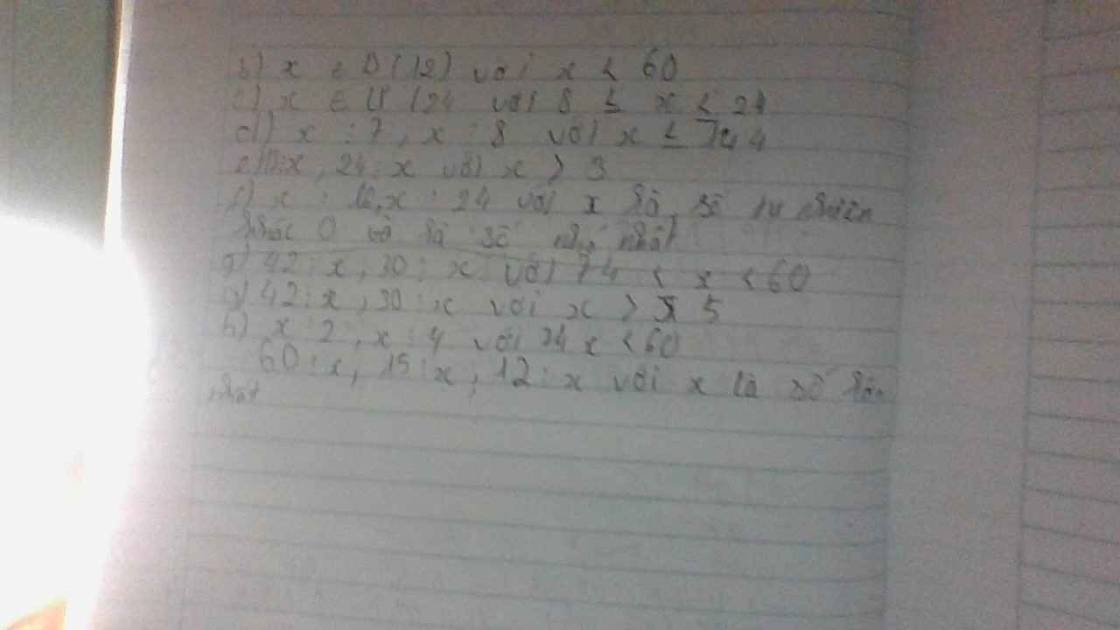 b) x ∈ B(12) với x < 60
c) x ∈ Ư (24 với 8 ≤ x < 24
d) x ⋮ 7, x ⋮ 8 với x ≤
⋮ x, 24 ⋮ x với x > 3
f) x ⋮ 12, x ⋮ 24 với x là số tự nhiên
khác 0 và là số nhỏ nhất
g) 42 ⋮ x, 30 ⋮ x với < x < 60
g) 42 ⋮ x, 30 ⋮ x với x > 5
h) x ⋮ 2, x ⋮ 4 với x < 60
60 ⋮ x, 15 ⋮ x, 12 ⋮ x với x là số lớn
nhất